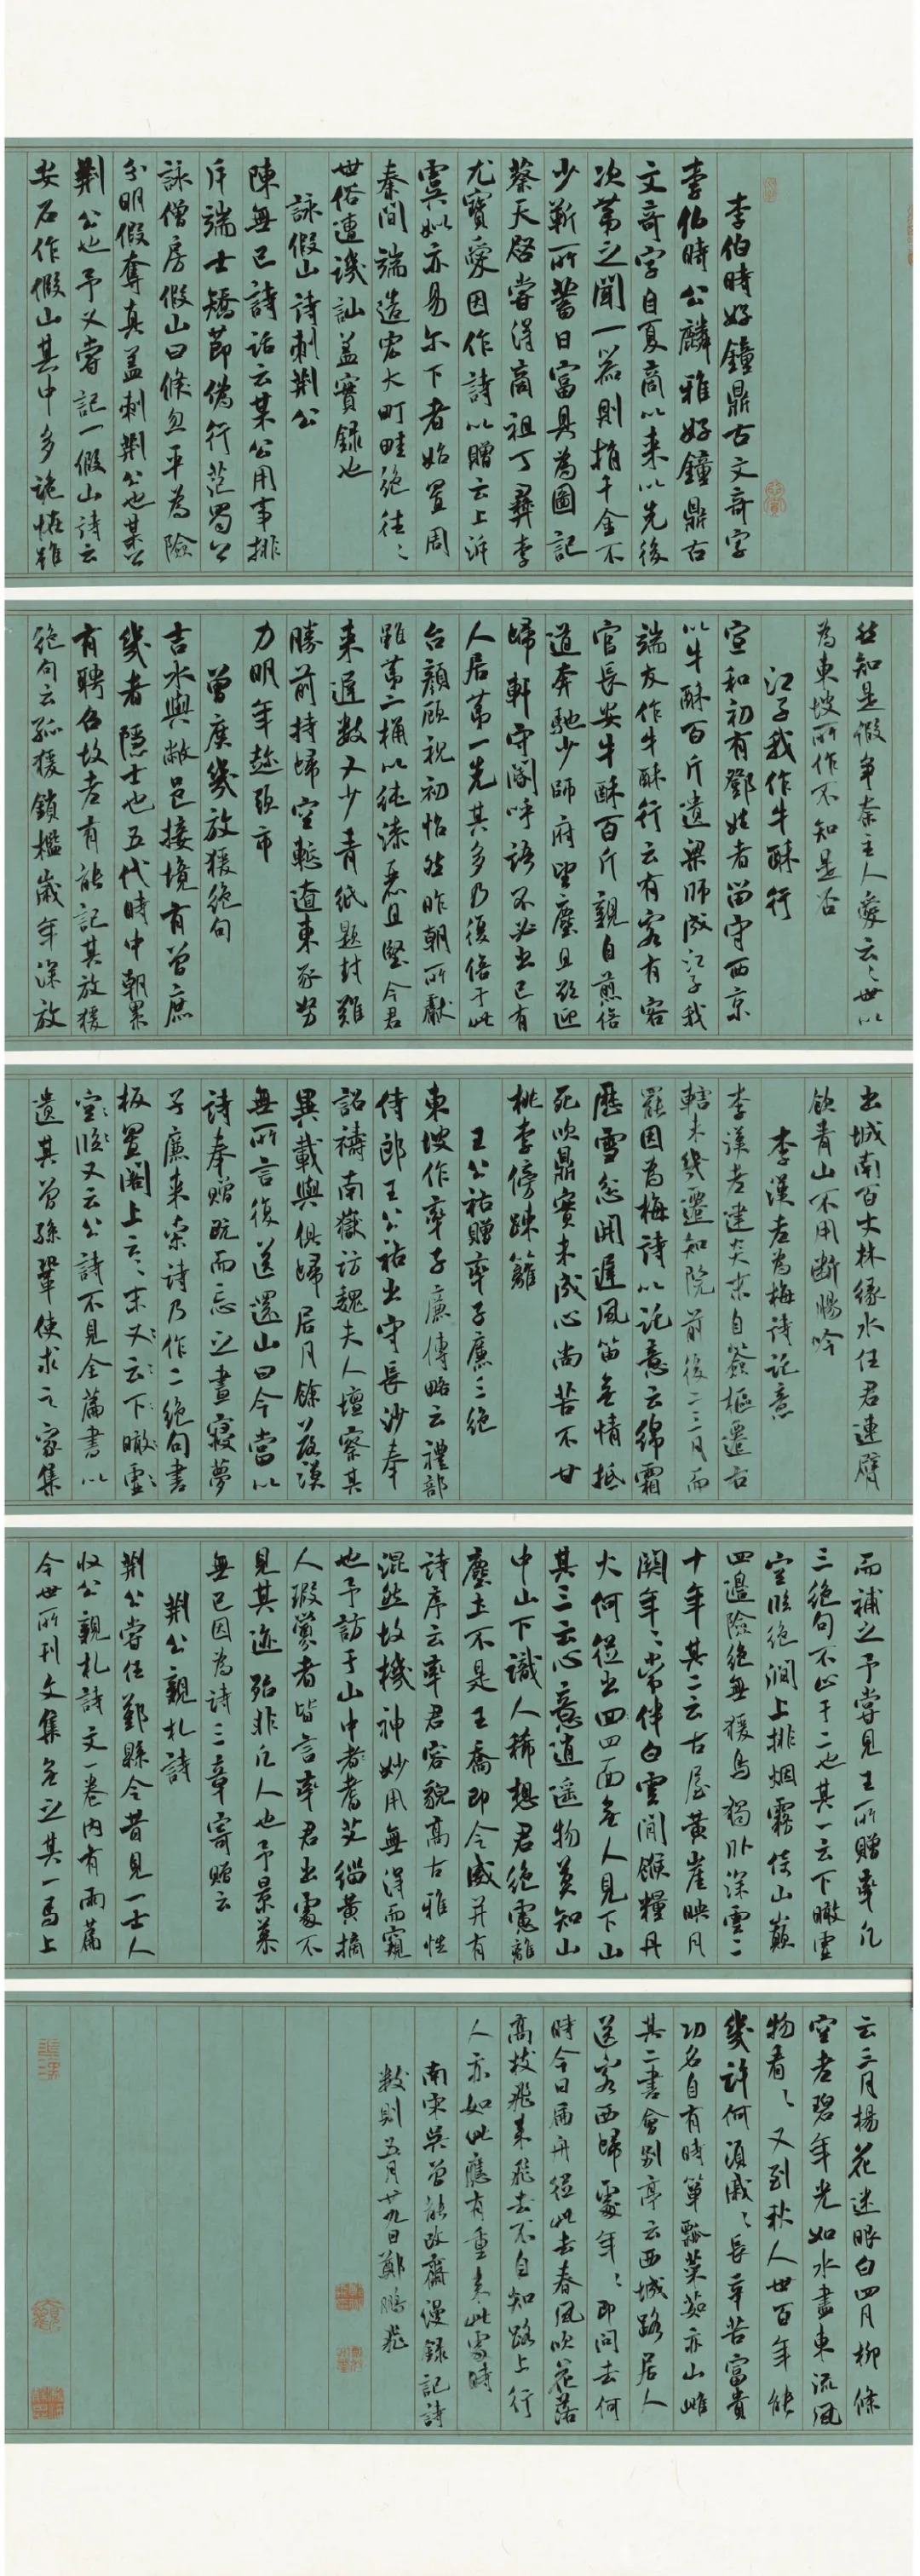 李伯時好鐘鼎古文奇字
李伯時公麟雅好鐘鼎古
文奇字自夏商以来以先後
次第之聞一器則捐千金不
少靳所蓄日富具為圖記
蔡天啓嘗得商祖丁彝李
尤寶愛因作詩以贈云上泝
虞姒亦易尔下者始置周
秦間端造宏大町畦絶往々
世俗遭譏訕盖實録也
詠假山詩刺荆公
陳無已詩話云某公用事排
斥端士矯節偽行范蜀公
詠僧房假山曰倏忽平為險
分明假奪真盖刺荆公也某公
荆公也予又嘗記一假山詩云
安石作假山其中多詭怪雖
然知是假争奈主人愛云々世以
為東坡所作不知是否
江子我作牛酥行
宣和初有鄧姓者留守西京
以牛酥百斤遺梁師成江子我
端友作牛酥行云有客有客
官長安牛酥百斤親自煎倍
道奔馳少師府望塵且欲迎
歸軒守閽呼語不必出已有
人居第一先其多乃復倍于此
台顔顧視初怡然昨朝所獻
雖第二桶以純漆麗且堅今君
来遲數又少青紙題封難
勝前持歸空慙遼東豕努
力明年趂頭市
曾庶幾放猨絶句
吉水與敝邑接境有曾庶
幾者隱士也五代時中朝累
有聘召故老有能記其放猨
絶句云孤猨鎖檻歲年深放
出城南百丈林緣水任君連臂
飲青山不用斷腸吟
李漢老為梅詩託意
李漢老建炎末自簽樞遷右
轄未幾遷知院前後二三月而
罷因為梅詩以託意云綿霜
歷雪忩開遲風笛無情抵
死吹鼎實未成心尚苦不甘
桃李傍踈籬
王公祐贈率子廉三絶
東坡作率子廉傳略云禮部
侍郎王公祐出守長沙奉
詔禱南嶽訪魏夫人壇察其
異載與俱歸居月餘落漠
無所言復送還山曰今當以
詩奉贈既而忘之晝寢夢
子廉来索詩乃作二絶句書
板置閣上云々末又云下瞰虚
空臨又云公詩不見全篇書以
遺其曾孫鞏使求之家集
而補之予嘗見王所贈率凡
三絶句不止于二也其一云下瞰虚
空臨絶澗上排烟霧倚山巔
四邉險絶無猨鳥獨卧深雲二
十年其二云古屋黄崖映月
関年々常伴白雲閒餱糧丹
火何從出四面無人見下山
其三云心意逍遥物莫知山
中山下識人稀想君絶慮離
塵土不是王喬即令威并有
詩序云率君容貌高古雅性
混然故機神妙用無得而窺
也予訪于山中耆艾緇黄摘
人瑕釁者皆言率君出處不
見其迹殆非凡人也予景慕
無已因為詩三章寄贈云
荆公親札詩
荆公嘗任鄞縣令昔見一士人
收公親札詩文一卷内有兩篇
今世所刊文集無之其一馬上
云三月楊花迷眼白四月柳條
空老碧年光如水盡東流風
物看々又到秋人世百年能
幾許何須戚々長辛苦富貴
功名自有時簞瓢菜茹亦山雌
其二書會別亭云西城路居人
送客西歸處年々即問去何
時今日扁舟從此去春風吹花落
高枝飛来飛去不自知路上行
人亦如此應有重来此處時
南宋吳曾能改齋漫録記詩
数則五月廿九日鄭鵬飛